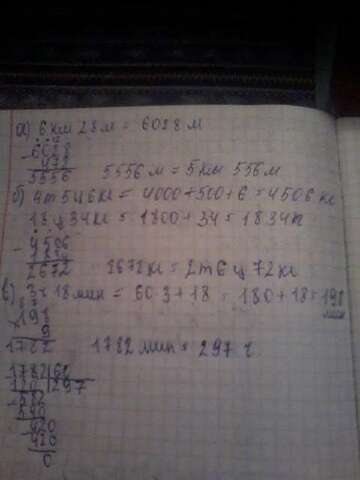 а) 6 км 28 м = 6028 м
6028
- 472
5556
5556 м = 5 км 556 м
б) 4т 5ц 6кг = 4000+500+6=4506 кг
18 ц 34 кг = 1800+34=1834
- 4506
1834
2672
2672 кг = 2 т 6 ц 72 кг
в) 3ч 18 мин = 60·3+18 = 180+18=198
мин
× 198
9
1782
1782 мин = 297 ч
- 1782
120 297
- 582
540
- 420
420
0